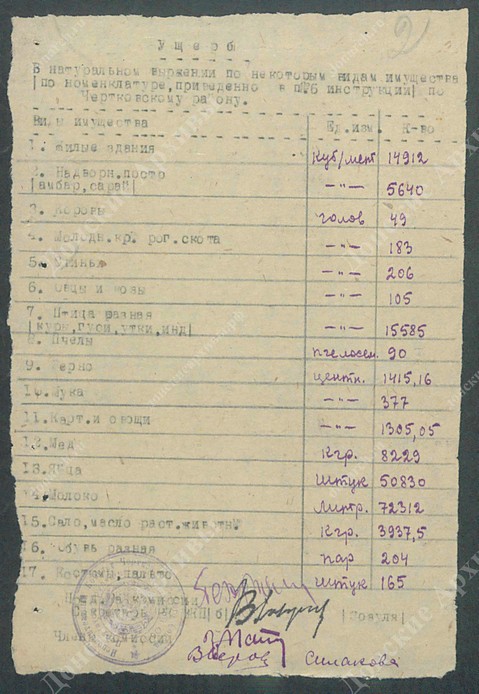 2
Ущерб
В натуральном выражении по некоторым видам имущества
|по номенклатуре, приведенно в п№6 инструкции| по
Чертковскому району.
Виды имущества Ед.изм. К-во
1. Жилые здания Куб/мет 14912
2. Надворн.постр
|амбар,сарай| -"- 5640
3. Коровы голов 49
4. Молодн.кр.рог.скота -"- 183
5. Свиньи -"- 206
6. Овцы и козы -"- 105
7. Птица разная
|куры,гуси,утки,инд| -"- 15585
8. Пчелы пчелосем. 90
9. Зерно центн. 1415,16
10. Мука -"- 377
11. Карт.и овощи -"- 1305,05
12. Мед Кгр. 8229
13. Яйца штук 50830
14. Молоко литр. 72312
15. Сало,масло раст.животн. Кгр. 3937,5
16. Обувь разная пар 204
17. Костюмы,пальто штук 165
Члены комиссии